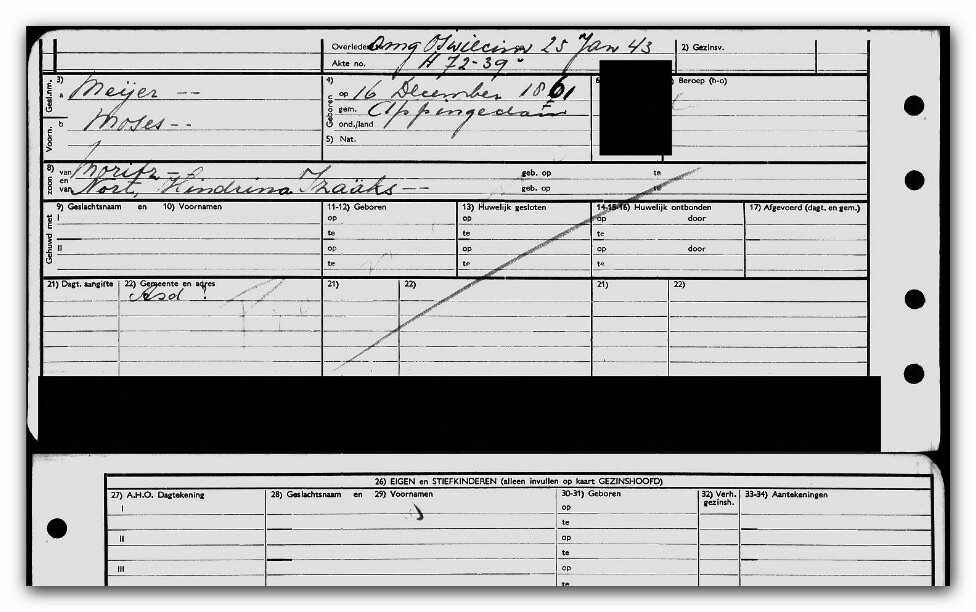 Overleden omg Oswiecim 25 Jan 43 2) Gezinsv.
Akte no. H 72-39
3) a Gesl.nm. Meijer -- 4) Geboren op 16 December 1861 Beroep (h-o)
gem. Appingedam
b Voorn. Moses -- ond./land
5) Nat.
8) zoon van Moritz - geb. op te
en van Nort, Hindrina Izaäks -- geb. op te
9) Geslachtsnaam en 10) Voornamen 11-12) Geboren 13) Huwelijk gesloten 14-15-16) Huwelijk ontbonden 17) Afgevoerd (dagt. en gem.)
Gehuwd met I op op op door
te te te
II op op op door
te te te
21) Dagt. aangifte 22) Gemeente en adres 21) 22) 21) 22)
Asd
26) EIGEN en STIEFKINDEREN (alleen invullen op kaart GEZINSHOOFD)
27) A.H.O. Dagtekening 28) Geslachtsnaam en 29) Voornamen 30-31) Geboren 32) Verh. gezinsh. 33-34) Aantekeningen
I op
te
II op
te
III op
te